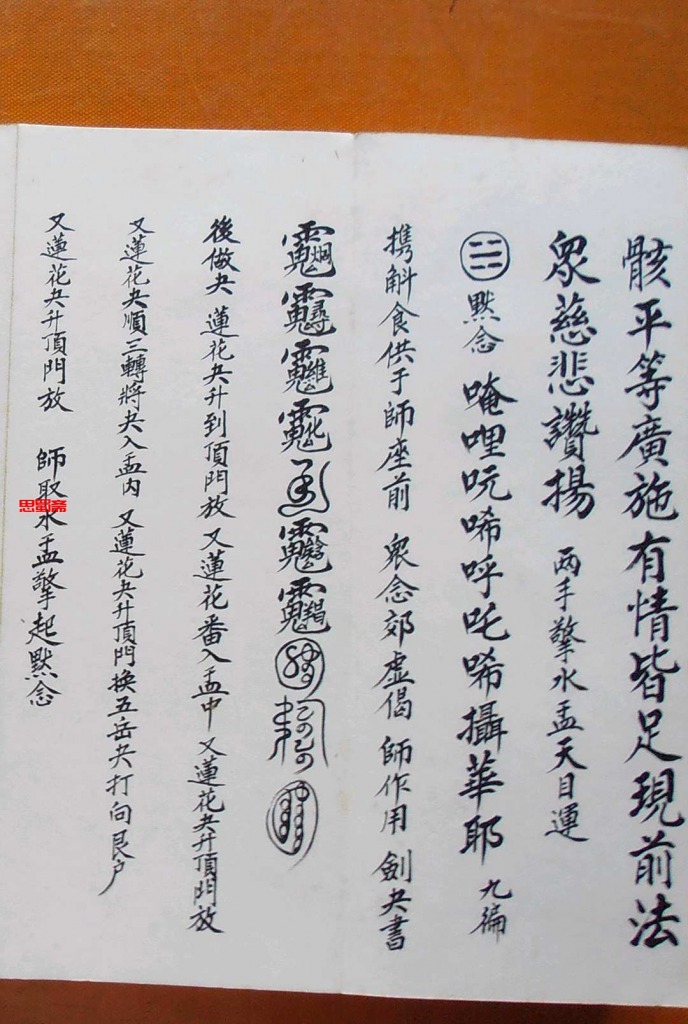 骸平等廣施有情皆足現前法
眾慈悲讚揚 两手擎水盂天目運
默念 唵哩吭唏呼吒唏攝華耶 九徧
携斛食供于師座前 眾念郊虛偈 師作用 劍夬書
後做夬 蓮花夬升到頂門放 又蓮花番入盂中 又蓮花夬升頂門放
又蓮花夬順三轉將夬入盂内 又蓮花夬升頂門换五岳夬打向艮户
又蓮花夬升頂門放 師取水盂擎起默念
思鄧斋